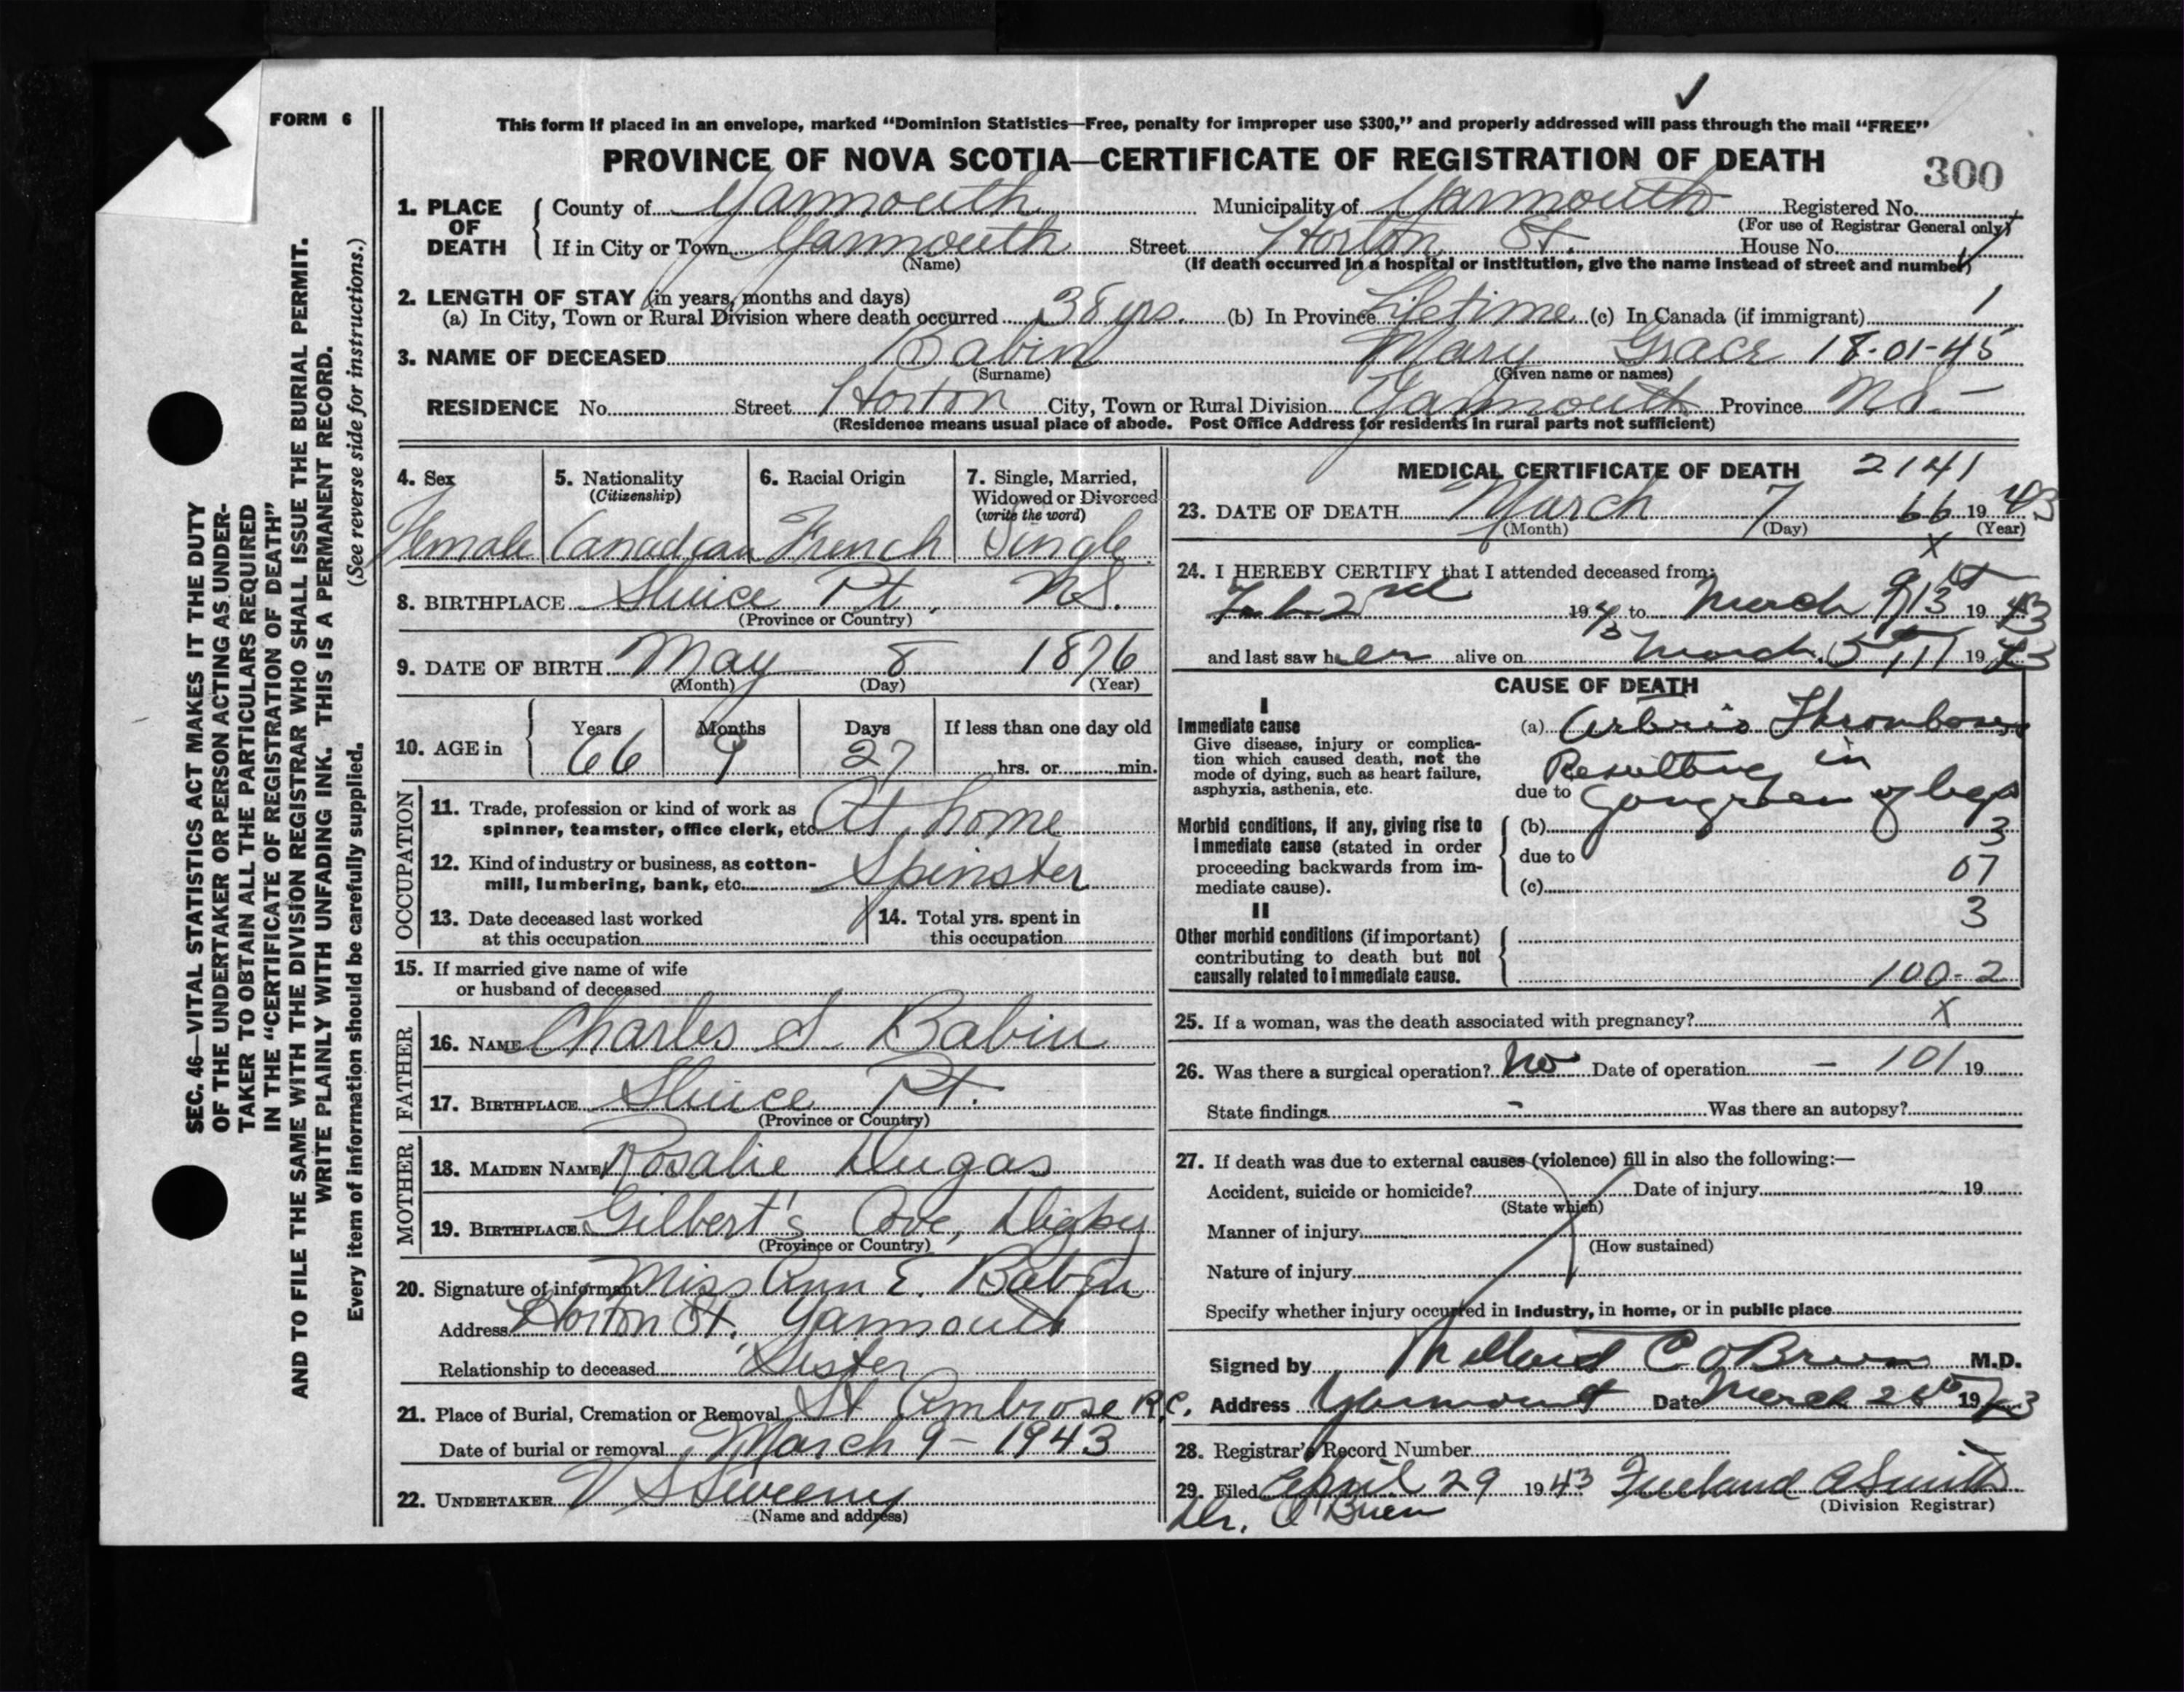 FORM 6
This form if placed in an envelope, marked “Dominion Statistics—Free, penalty for improper use $300,” and properly addressed will pass through the mail “FREE”
PROVINCE OF NOVA SCOTIA—CERTIFICATE OF REGISTRATION OF DEATH
300
1. PLACE OF DEATH
County of Yarmouth Municipality of Yarmouth Registered No.
(For use of Registrar General only)
If in City or Town Yarmouth Street Horton St. House No.
(Name) (If death occurred in a hospital or institution, give the name instead of street and number)
2. LENGTH OF STAY (in years, months and days)
(a) In City, Town or Rural Division where death occurred 38 yrs. (b) In Province Lifetime (c) In Canada (if immigrant) 1
3. NAME OF DECEASED Babin Mary Grace 18-01-45
(Surname) (Given name or names)
RESIDENCE No. Street Horton City, Town or Rural Division Yarmouth Province N.S.
(Residence means usual place of abode. Post Office Address for residents in rural parts not sufficient)
4. Sex 5. Nationality 6. Racial Origin 7. Single, Married,
(Citizenship) Widowed or Divorced
(write the word)
Female Canadian French Single
8. BIRTHPLACE Sluice Pt. N.S.
(Province or Country)
9. DATE OF BIRTH May 8 1876
(Month) (Day) (Year)
10. AGE in Years Months Days If less than one day old
66 9 27 hrs. or min.
OCCUPATION
11. Trade, profession or kind of work as
spinner, teamster, office clerk, etc. At home
12. Kind of industry or business, as cotton-
mill, lumbering, bank, etc. Spinster
13. Date deceased last worked
at this occupation
14. Total yrs. spent in
this occupation
15. If married give name of wife
or husband of deceased
FATHER
16. NAME Charles S. Babin
17. BIRTHPLACE Sluice Pt.
(Province or Country)
MOTHER
18. MAIDEN NAME Rosalie Dugas
19. BIRTHPLACE Gilbert's Cove, Digby
(Province or Country)
20. Signature of informant Miss Ann E. Babin
Address Horton St. Yarmouth
Relationship to deceased Sister
21. Place of Burial, Cremation or Removal St Ambrose R.C.
Date of burial or removal March 9 - 1943
22. UNDERTAKER V S Sweeny
(Name and address)
MEDICAL CERTIFICATE OF DEATH 2141
23. DATE OF DEATH March 7 66 1943
(Month) (Day) (Year)
X
24. I HEREBY CERTIFY that I attended deceased from:
Feb 2nd 1943 to March 1943
and last saw her alive on March 5th 1943
CAUSE OF DEATH
I
Immediate cause
Give disease, injury or complica-
tion which caused death, not the
mode of dying, such as heart failure,
asphyxia, asthenia, etc.
(a) Thrombosis
Resulting in
due to Gangreen of legs
Morbid conditions, if any, giving rise to
immediate cause (stated in order
proceeding backwards from im-
mediate cause).
(b) 3
due to 07
(c)
II 3
Other morbid conditions (if important)
contributing to death but not
causally related to immediate cause.
100-2
25. If a woman, was the death associated with pregnancy? X
26. Was there a surgical operation? No Date of operation – 101 19
State findings - Was there an autopsy?
27. If death was due to external causes (violence) fill in also the following:—
Accident, suicide or homicide? Date of injury 19
(State which)
Manner of injury
(How sustained)
Nature of injury
Specify whether injury occurred in industry, in home, or in public place
Signed by C OBrien M.D.
Address Yarmouth Date March 1943
28. Registrar's Record Number
29. Filed April 29 1943 A Smith
(Division Registrar)
Dr. O'Brien
SEC. 46—VITAL STATISTICS ACT MAKES IT THE DUTY
OF THE UNDERTAKER OR PERSON ACTING AS UNDER-
TAKER TO OBTAIN ALL THE PARTICULARS REQUIRED
IN THE “CERTIFICATE OF REGISTRATION OF DEATH”
AND TO FILE THE SAME WITH THE DIVISION REGISTRAR WHO SHALL ISSUE THE BURIAL PERMIT.
WRITE PLAINLY WITH UNFADING INK. THIS IS A PERMANENT RECORD.
Every item of information should be carefully supplied. (See reverse side for instructions.)